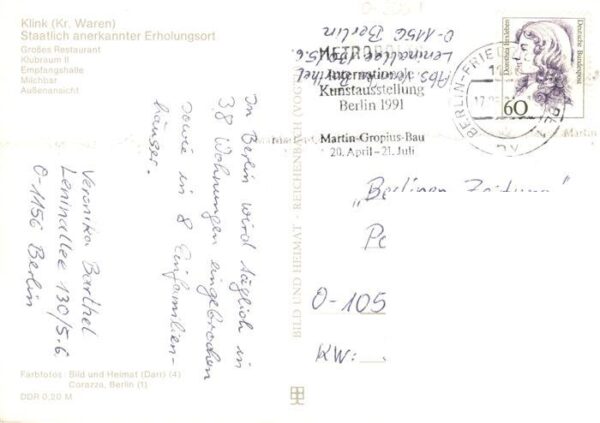 Klink (Kr. Waren)
Staatlich anerkannter Erholungsort
Großes Restaurant
Klubraum II
Empfangshalle
Milchbar
Außenansicht
In Berlin wird täglich in
38 Wohnungen eingebrochen
sowie in 8 Einfamilien-
häuser.
Veronika Barthel
Leninallee 130/5.6.
O-1156 Berlin
Farbfotos: Bild und Heimat (Darr) (4)
Corazza, Berlin (1)
DDR 0,20 M
BILD UND HEIMAT REICHENBACH (VOGT
Abs.
Barthel
Leninallee
O-1156 Berlin
METROPOLIS
Internationale
Kunstausstellung
Berlin 1991
Martin-Gropius-Bau
20. April - 21. Juli
Martin
BERLIN-FRIED
Dorothea Erxleben
Deutsche Bundespost
60
„Berliner Zeitung"
O-105
KW: